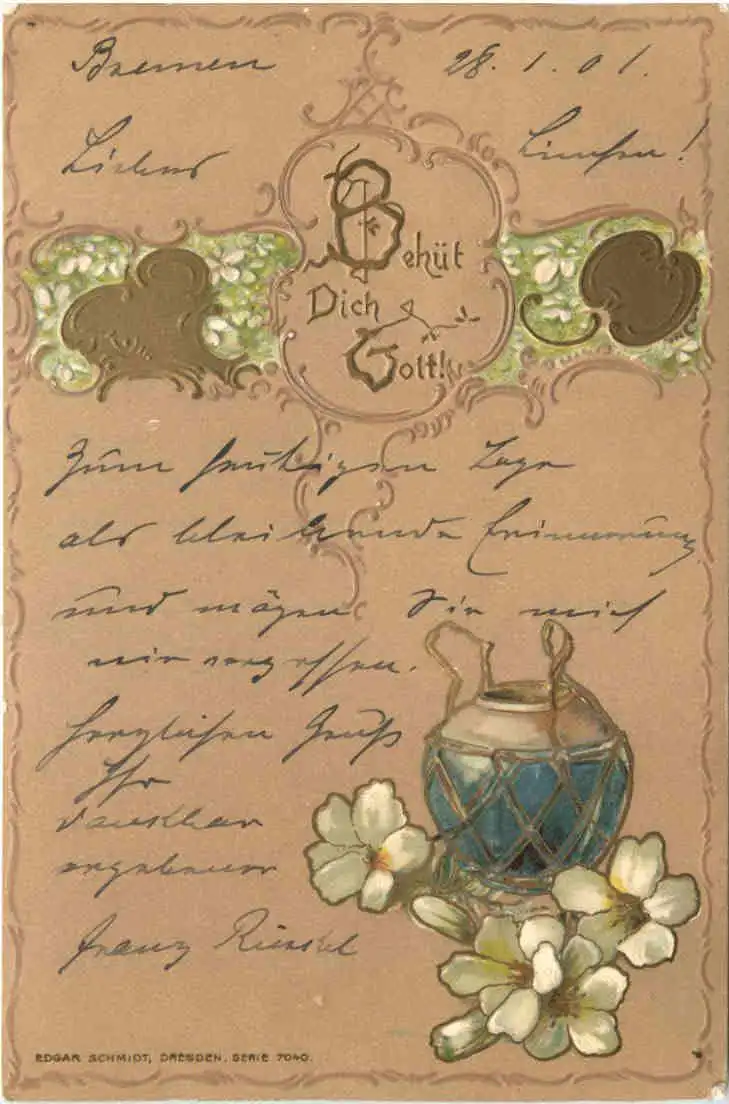 Bremen 28. 1. 01.
Liebes !
Behüt
Dich
Gott!
Zum heutigen Tage
als bleibende Erinnerung
und mögen Sie mich
nie vergessen.
Herzlichen Gruß
Ihr
dankbar
ergebener
Franz
EDGAR SCHMIDT, DRESDEN. SERIE 7040.